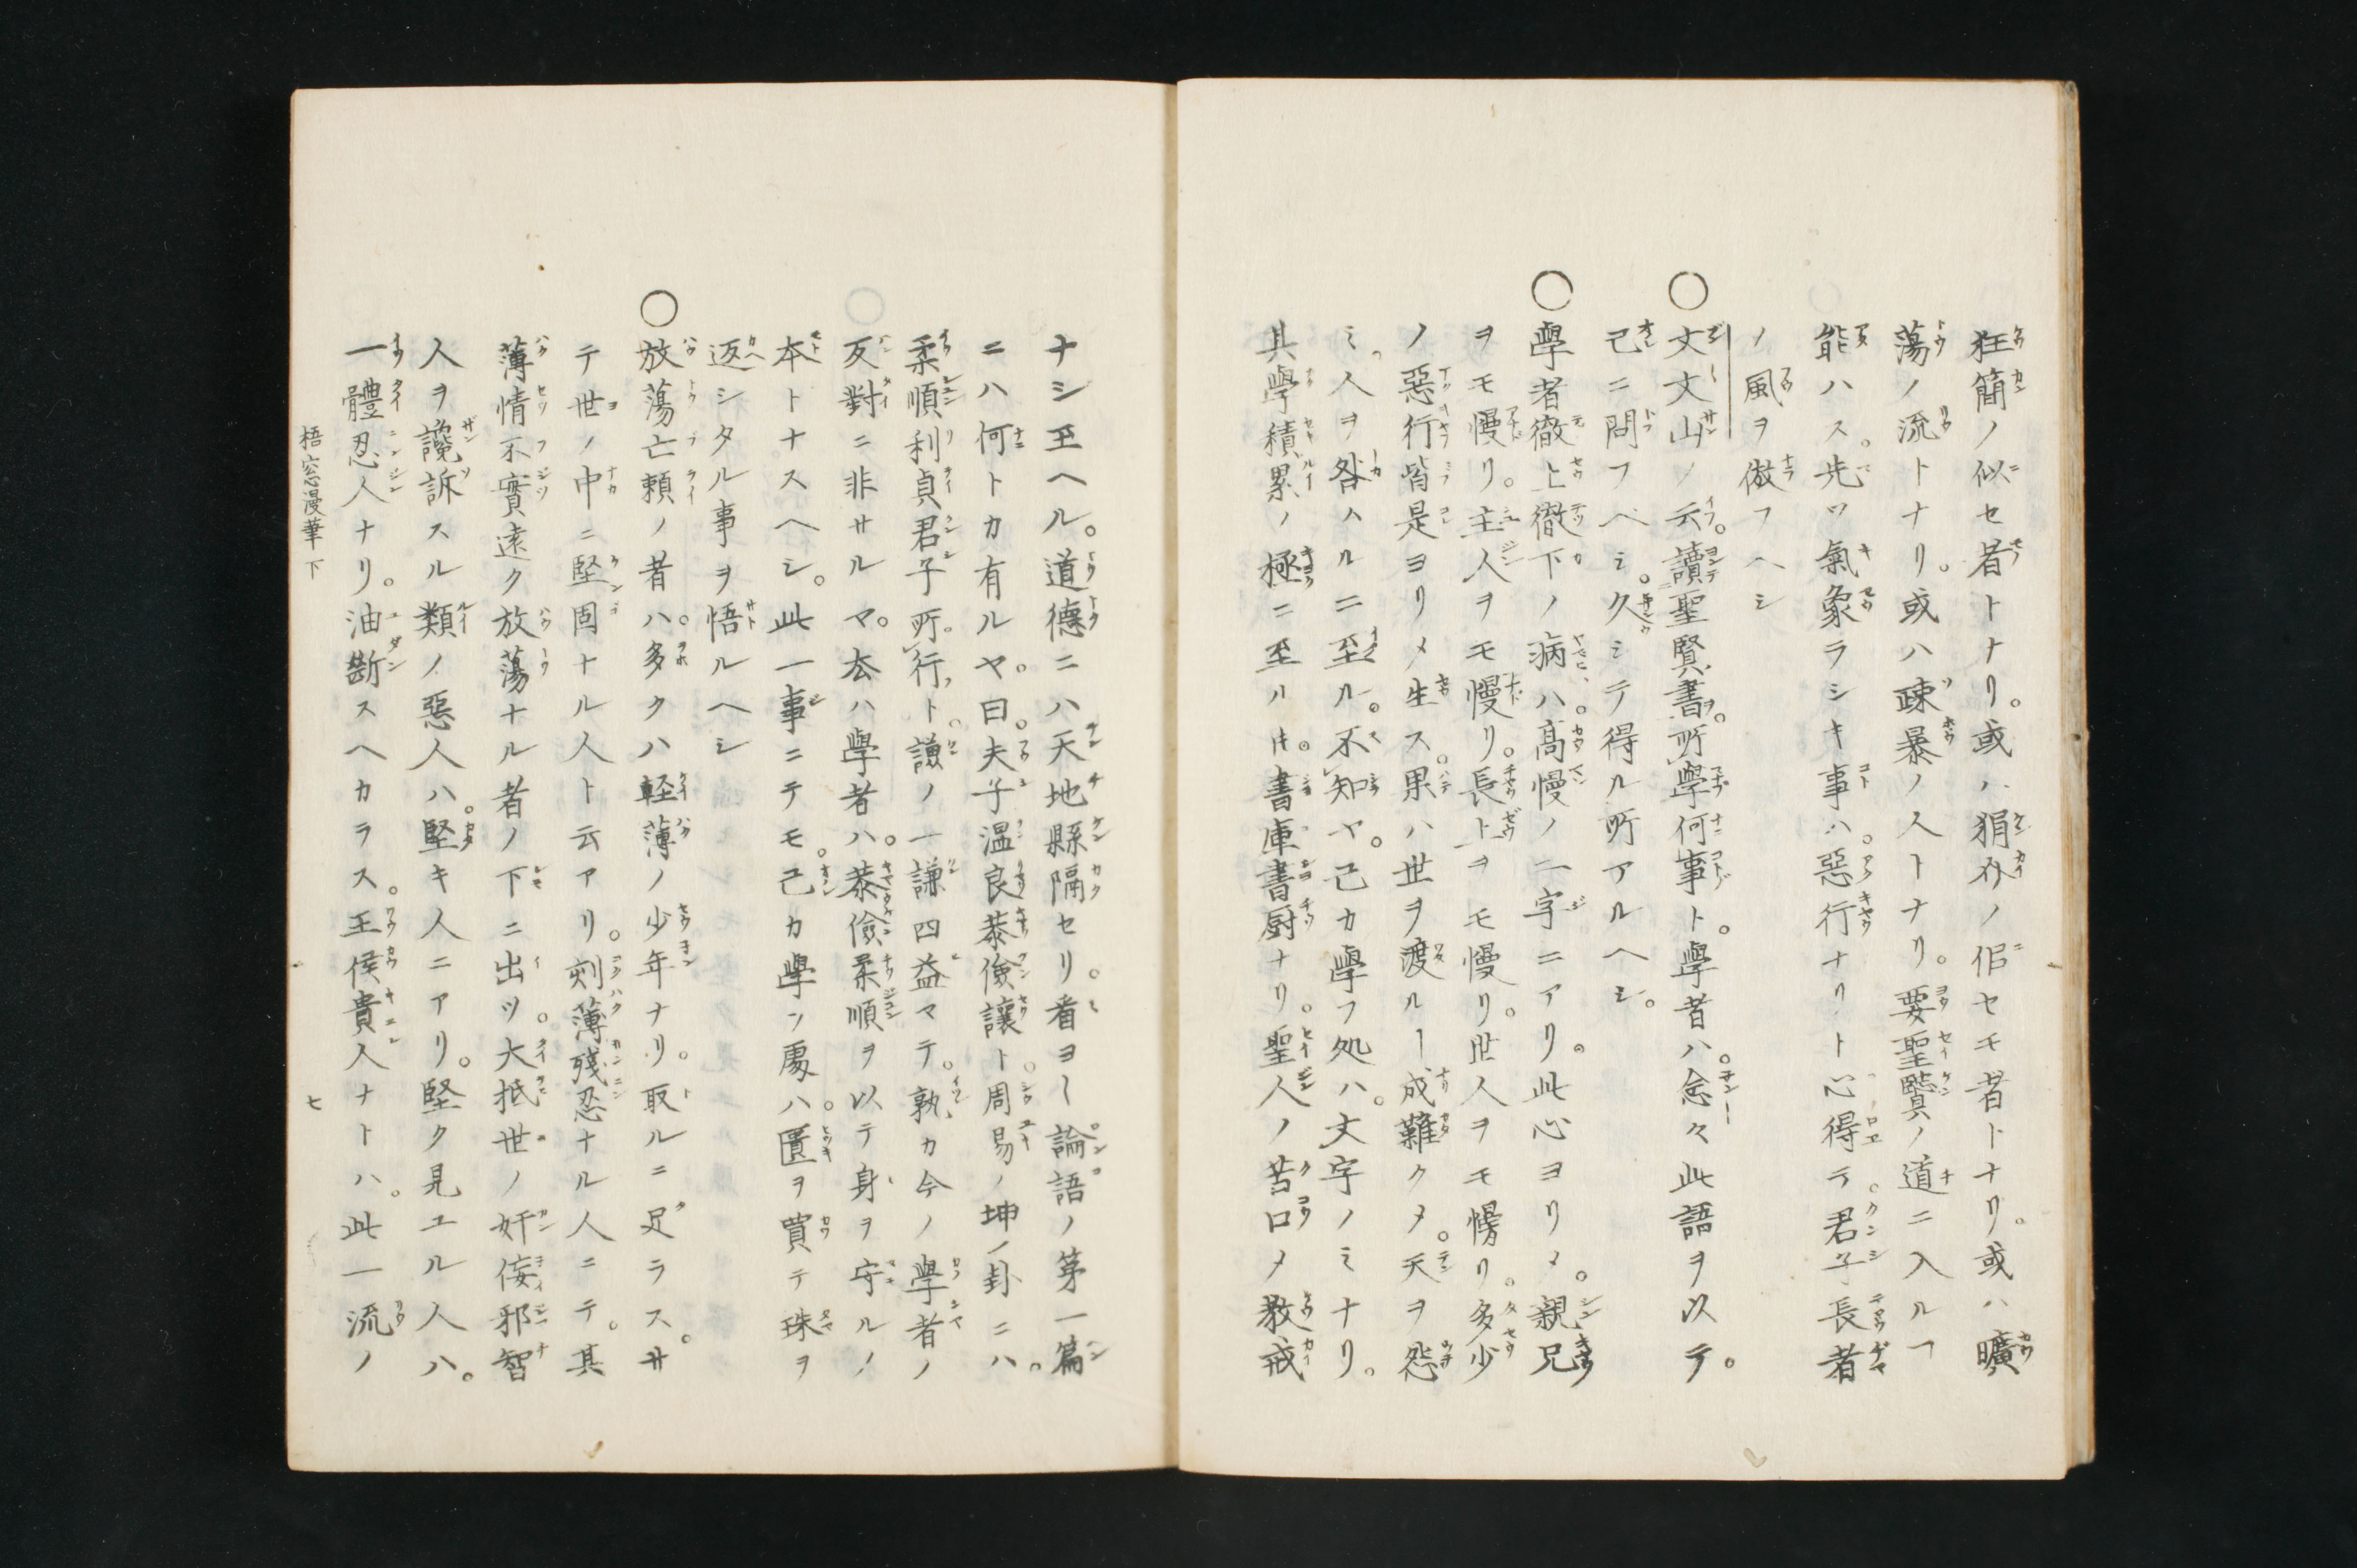 狂簡ノ似セ者トナリ。或ハ狷介ノ佀セモ者トナリ。或ハ曠
蕩ノ流トナリ。或ハ疎暴ノ人トナリ。要聖賢ノ道ニ入ルヿ
能ハス。先ツ氣象ラシキ事ハ。惡行ナリト心得テ。君子長者
ノ風ヲ倣フヘシ
○文文山ノ云。讀聖賢書。所學何事ト。學者ハ。念々此語ヲ以テ。
己ニ問フベシ。久シテ得ル所アルヘシ。
○學者徹上徹下ノ病ハ。髙慢ノ二字ニアリ。此心ヨリメ。親兄
ヲモ慢リ。主人ヲモ慢リ。長上ヲモ慢リ。世人ヲモ慢リ。多少
ノ惡行皆是ヨリメ生ス。果ハ世ヲ渡ルー成難クメ。天ヲ怨
ミ。人ヲ咎ルニ至ル。不知ヤ。己カ學フ処ハ。文字ノミナリ。
其學積累ノ極ニ至ルモ。書庫書厨ナリ。聖人ノ苦口メ教戒
ナシ玉ヘル。道德ニハ天地縣隔セリ。看ヨー論語ノ第一篇
ニハ何トカ有ルヤ。曰。夫子温良恭儉讓ト。周易ノ坤ノ卦ニハ。
柔順利貞君子所行ト。謙ノ一謙四益マテ。孰カ今ノ學者ノ
反對ニ非サルマ。夲ハ學者ハ。恭儉柔順ヲ以テ身ヲ守ルノ
本トナスヘシ。此一事ニテモ。己カ學ン處ハ。匱ヲ買テ珠ヲ
返シタル事ヲ悟ルヘシ
○放蕩亡頼ノ者ハ。多クハ軽薄ノ少年ナリ。取ルニ足ラス。サ
テ世ノ中ニ堅固ナル人ト云アリ。刻薄殘忍ナル人ニテ。其
薄情不實遠ク放蕩ナル者ノ下ニ出ツ。大抵世ノ奸侫邪智
人ヲ讒訴スル類ノ惡人ハ。堅キ人ニアリ。堅ク見エル人ハ。
一體忍人ナリ。油断スヘカラス。王侯貴人ナトハ。此一流ノ
梧窓漫筆下　七